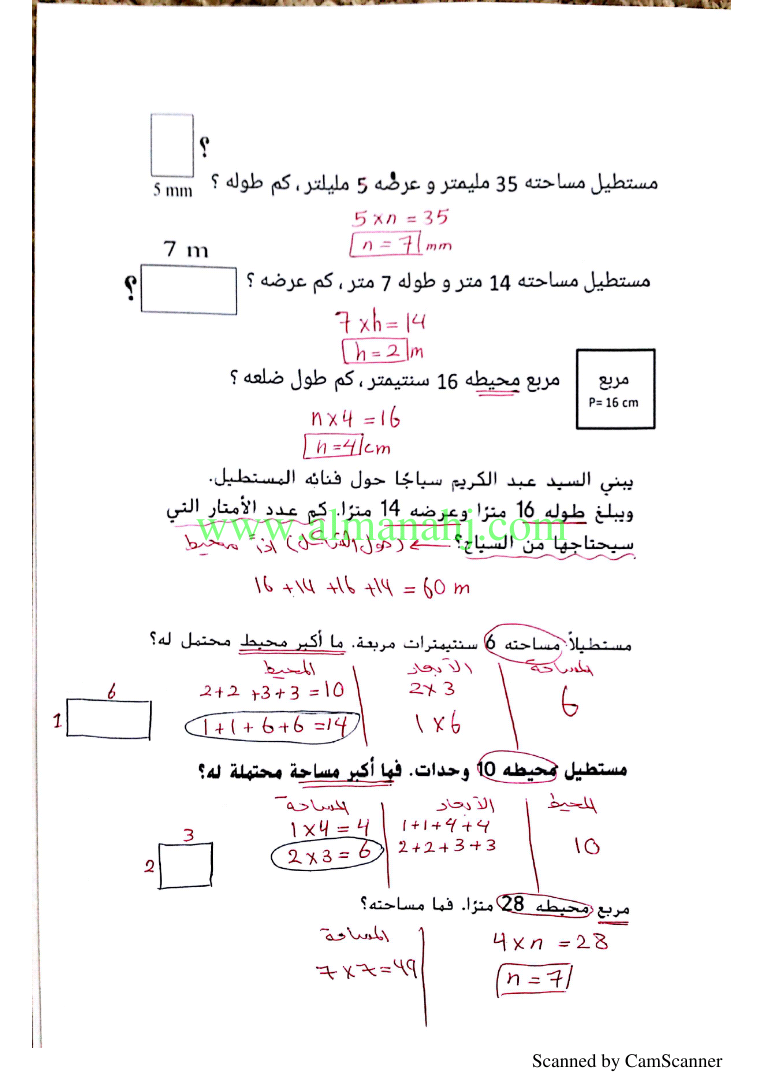 ؟
5 mm
مستطيل مساحته 35 مليمتر و عرضه 5 مليلتر ، كم طوله ؟
5 × n = 35
n = 7 mm
7 m
؟
مستطيل مساحته 14 متر و طوله 7 متر ، كم عرضه ؟
7 × h = 14
h = 2 m
مربع
P= 16 cm
مربع محيطه 16 سنتيمتر ، كم طول ضلعه ؟
n × 4 = 16
n = 4 cm
يبني السيد عبد الكريم سياجًا حول فنائه المستطيل.
ويبلغ طوله 16 مترًا وعرضه 14 مترًا. كم عدد الأمتار التي
www.almanahj.com
سيحتاجها من السياج؟ ← (حول الشكل) إذاً محيط
16 + 14 + 16 + 14 = 60 m
مستطيلاً مساحته 6 سنتيمترات مربعة. ما أكبر محيط محتمل له؟
المساحة الأبعاد المحيط
6 2 × 3 2 + 2 + 3 + 3 = 10
1 × 6 1 + 1 + 6 + 6 = 14
6
1
مستطيل محيطه 10 وحدات. فما أكبر مساحة محتملة له؟
المحيط الأبعاد المساحة
10 1 + 1 + 4 + 4 1 × 4 = 4
2 + 2 + 3 + 3 2 × 3 = 6
3
2
مربع محيطه 28 مترًا. فما مساحته؟
4 × n = 28
n = 7
المساحة
7 × 7 = 49
Scanned by CamScanner